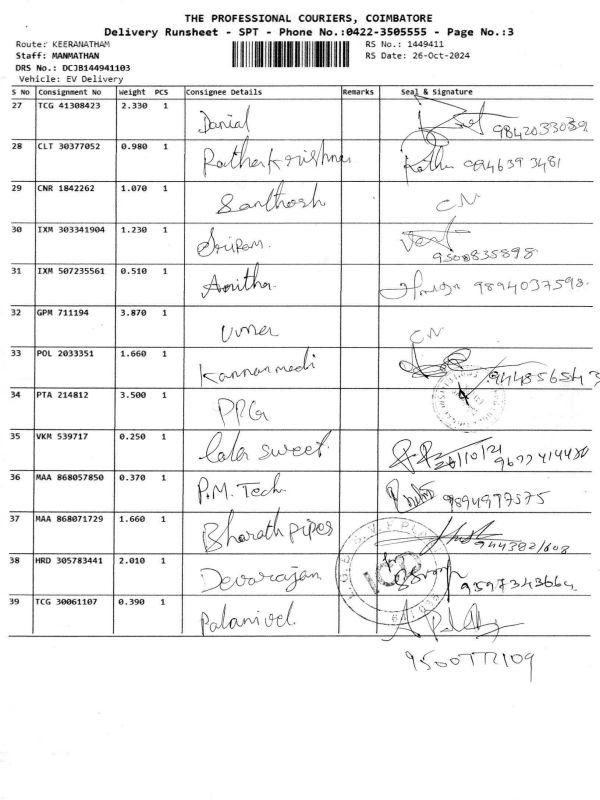 THE PROFESSIONAL COURIERS, COIMBATORE
Delivery Runsheet - SPT - Phone No.:0422-3505555 - Page No.:3
Route: KEERANATHAM RS No.: 1449411
Staff: MANMATHAN RS Date: 26-Oct-2024
DRS No.: DCJB144941103
Vehicle: EV Delivery
S No Consignment No Weight PCS Consignee Details Remarks Seal & Signature
27 TCG 41308423 2.330 1 Danial 9842033039
28 CLT 30377052 0.980 1 9894639 3481
29 CNR 1842262 1.070 1 Santhosh CN
30 IXM 303341904 1.230 1 Sriram. 9500835898
31 IXM 507235561 0.510 1 Amitha 9894037598
32 GPM 711194 3.870 1 Umer CN
33 POL 2033351 1.660 1 Kannan medi 9448565543
34 PTA 214812 3.500 1 PRG
35 VKM 539717 0.250 1 Lala sweet
36 MAA 868057850 0.370 1 P.M. Tech 9894977575
37 MAA 868071729 1.660 1 Bharath pipes 9443821608
38 HRD 305783441 2.010 1 Devarajan 9597343664
39 TCG 30061107 0.390 1 Palanivel